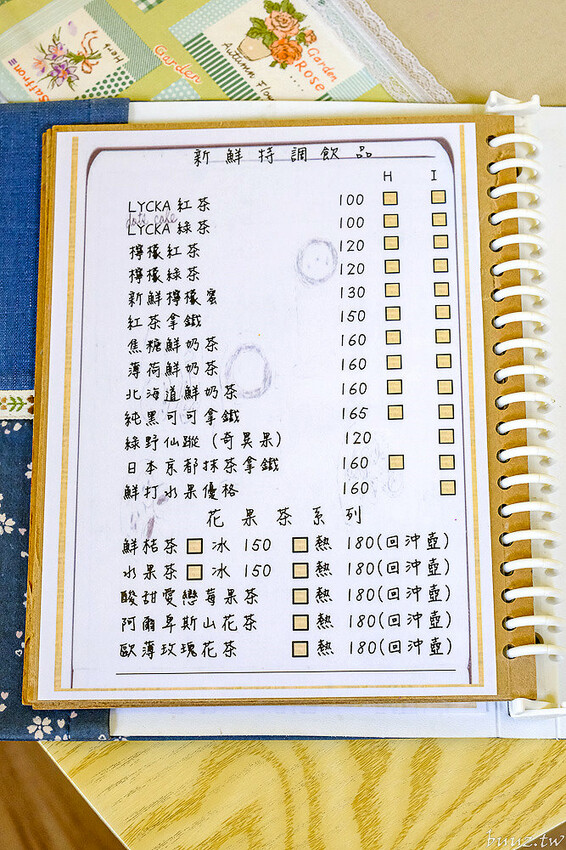 Saffron
Heart
Garden
Autumn Flo
Garden
Rose
新鮮特調飲品
H I
LYCKA 紅茶 100
LYCKA 綠茶 100
檸檬紅茶 120
檸檬綠茶 120
新鮮檸檬蜜 130
紅茶拿鐵 150
焦糖鮮奶茶 160
薄荷鮮奶茶 160
北海道鮮奶茶 160
純黑可可拿鐵 165
綠野仙蹤(奇異果) 120
日本京都抹茶拿鐵 160
鮮打水果優格 160
花果茶系列
鮮桔茶 冰 150 熱 180(回沖壺)
水果茶 冰 150 熱 180(回沖壺)
酸甜雯戀莓果茶 熱 180(回沖壺)
阿爾卑斯山花茶 熱 180(回沖壺)
歐薄玫瑰花茶 熱 180(回沖壺)
buu2.tw